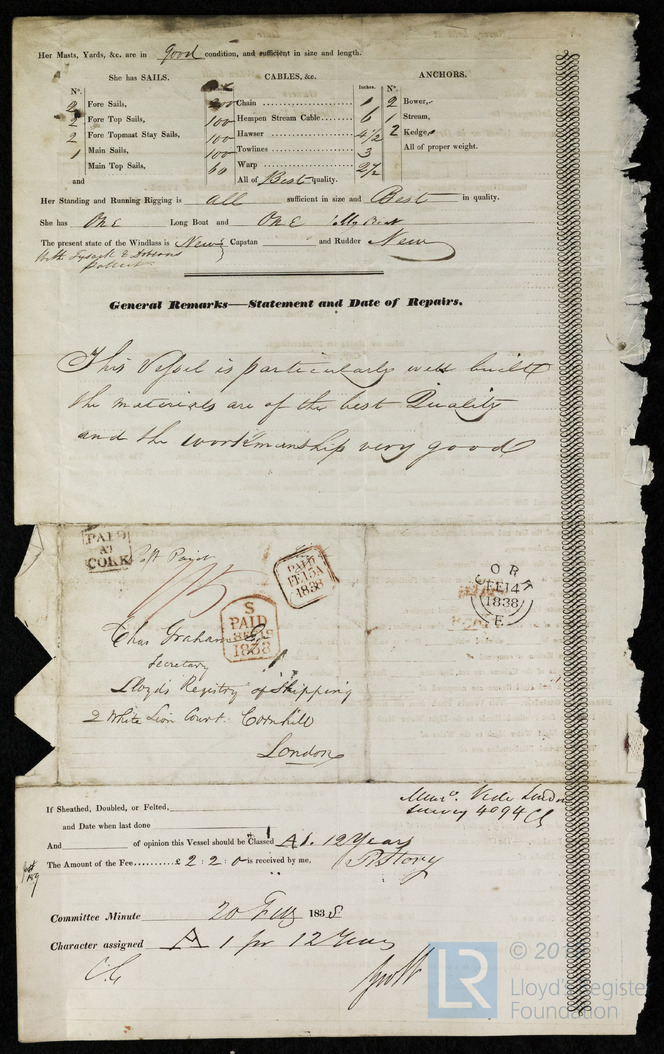 Her Masts, Yards, &c. are in good condition, and sufficient in size and length.
She has SAILS. CABLES, &c. ANCHORS.
Nº. Inches. Nº.
2 Fore Sails, 200 Chain 1 2 Bower,
2 Fore Top Sails, 100 Hempen Stream Cable 6 1 Stream,
2 Fore Topmast Stay Sails, 100 Hawser 4½ 2 Kedge,
1 Main Sails, 100 Towlines 3 All of proper weight.
Main Top Sails, 60 Warp 2½
and All of Best quality.
Her Standing and Running Rigging is all sufficient in size and Best in quality.
She has One Long Boat and One Jolly Boat
The present state of the Windlass is New Capstan and Rudder New
With Tysack & Dobsons
patent
General Remarks—Statement and Date of Repairs.
This Vessel is particularly well built
the materials are of the best Quality
and the workmanship very good
PAID
AT
CORK
Post Paid
PAID
FE 15
1838
CORK
FE 14
1838
E
S
PAID
1838
Chas Graham
Secretary
Lloyd's Registry of Shipping
2 White Lion Court. Cornhill
London
If Sheathed, Doubled, or Felted,
and Date when last done
Vide London
Survey 4094
And of opinion this Vessel should be Classed A 1. 12 Years
The Amount of the Fee £ 2 : 2 : 0 is received by me,
Committee Minute 20 Feby 1838
Character assigned A 1 for 12 Years
LR
© 20
Lloyd's Register
Foundation